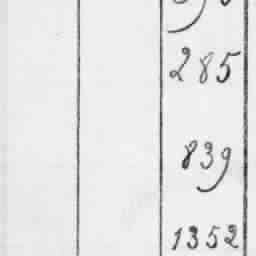 285
839
1352